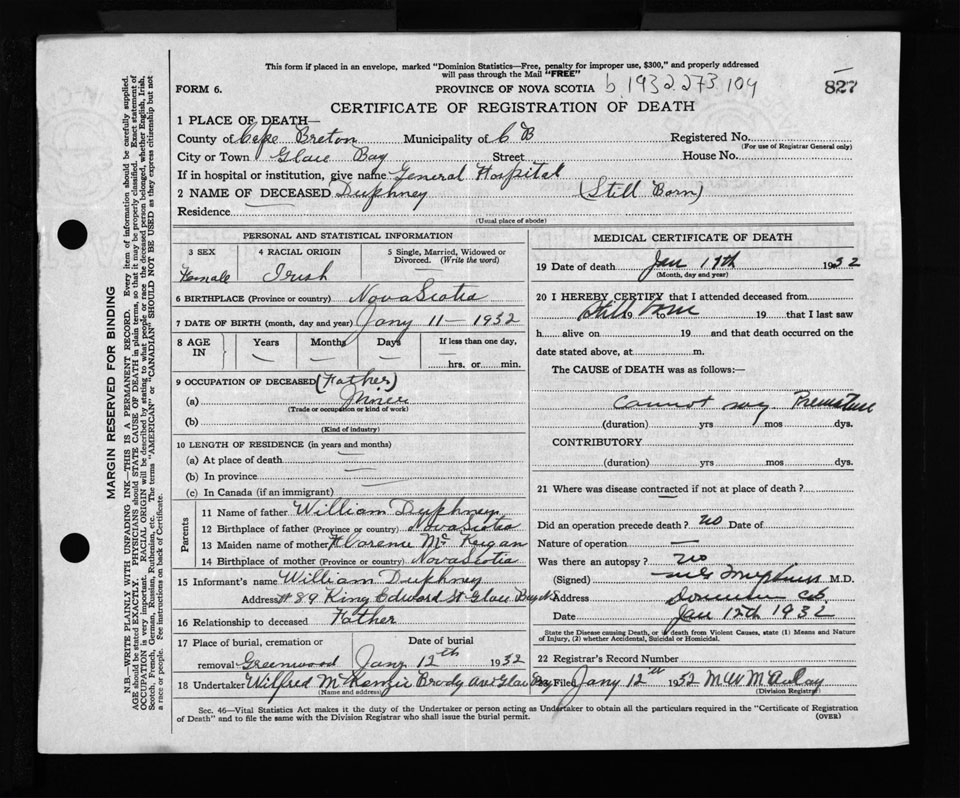 This form if placed in an envelope, marked "Dominion Statistics—Free, penalty for improper use, $300," and properly addressed
will pass through the Mail "FREE"
FORM 6. PROVINCE OF NOVA SCOTIA b.1932.273.104 827
CERTIFICATE OF REGISTRATION OF DEATH
1 PLACE OF DEATH—
County of Cape Breton Municipality of C B Registered No.
(For use of Registrar General only)
City or Town Glace Bay Street House No.
If in hospital or institution, give name General Hospital
2 NAME OF DECEASED Duphney (Still Born)
Residence
(Usual place of abode)
PERSONAL AND STATISTICAL INFORMATION
3 SEX 4 RACIAL ORIGIN 5 Single, Married, Widowed or
Divorced. (Write the word)
Female Irish
6 BIRTHPLACE (Province or country) Nova Scotia
7 DATE OF BIRTH (month, day and year) Jany 11 — 1932
8 AGE IN Years Months Days If less than one day,
hrs. or min.
9 OCCUPATION OF DECEASED (Father)
(a) Miner
(Trade or occupation or kind of work)
(b)
(Kind of industry)
10 LENGTH OF RESIDENCE (in years and months)
(a) At place of death
(b) In province
(c) In Canada (if an immigrant)
Parents
11 Name of father William Duphney
12 Birthplace of father (Province or country) Nova Scotia
13 Maiden name of mother Florence Mc Keigan
14 Birthplace of mother (Province or country) Nova Scotia
15 Informant's name William Duphney
Address #89 King Edward St Glace Bay NS
16 Relationship to deceased Father
17 Place of burial, cremation or Date of burial
removal Greenwood Jany 12th 1932
18 Undertaker Wilfred McKenzie Brody Ave Glace Bay
(Name and address)
MEDICAL CERTIFICATE OF DEATH
19 Date of death Jan 11th 1932
(Month, day and year)
20 I HEREBY CERTIFY that I attended deceased from
Still born 19 to 19 that I last saw
h alive on 19 and that death occurred on the
date stated above, at m.
The CAUSE of DEATH was as follows:
Cannot say Premature
(duration) yrs mos dys.
CONTRIBUTORY
(duration) yrs mos dys.
21 Where was disease contracted if not at place of death?
Did an operation precede death? no Date of
Nature of operation —
Was there an autopsy? no
(Signed) M.D.
Address Dominion C.B.
Date Jan 12th 1932
State the Disease causing Death, or if death from Violent Causes, state (1) Means and Nature
of Injury, (2) whether Accidental, Suicidal or Homicidal.
22 Registrar's Record Number
Filed Jany 12th 1932 M W McAulay
(Division Registrar)
Sec. 46—Vital Statistics Act makes it the duty of the Undertaker or person acting as Undertaker to obtain all the particulars required in the "Certificate of Registration
of Death" and to file the same with the Division Registrar who shall issue the burial permit. (OVER)
MARGIN RESERVED FOR BINDING
N.B.—WRITE PLAINLY WITH UNFADING INK—THIS IS A PERMANENT RECORD. Every item of information should be carefully supplied.
AGE should be stated EXACTLY. PHYSICIANS should STATE CAUSE OF DEATH in plain terms, so that it may be properly classified. Exact statement of
OCCUPATION is very important. RACIAL ORIGIN will be described by stating to what people or race the deceased person belonged, whether English, Irish,
Scotch, French, German, Russian, Ruthenian, etc. The terms "AMERICAN" or "CANADIAN" SHOULD NOT BE USED as they express citizenship but not
a race or people. See instructions on back of Certificate.